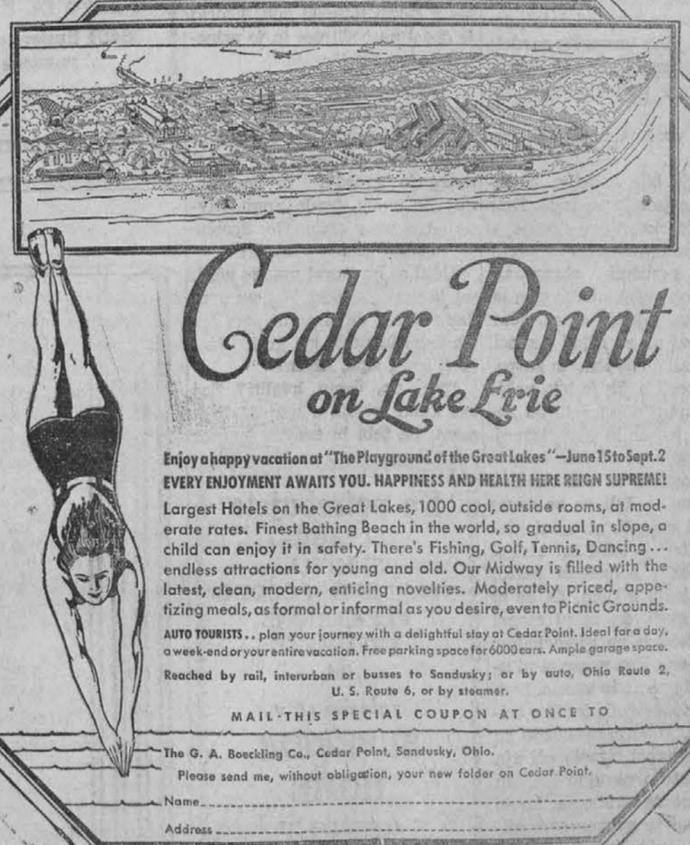 Cedar Point
on Lake Erie
Enjoy a happy vacation at "The Playground of the Great Lakes"—June 15 to Sept. 2
EVERY ENJOYMENT AWAITS YOU. HAPPINESS AND HEALTH HERE REIGN SUPREME!
Largest Hotels on the Great Lakes, 1000 cool, outside rooms, at mod-
erate rates. Finest Bathing Beach in the world, so gradual in slope, a
child can enjoy it in safety. There's Fishing, Golf, Tennis, Dancing...
endless attractions for young and old. Our Midway is filled with the
latest, clean, modern, enticing novelties. Moderately priced, appe-
tizing meals, as formal or informal as you desire, even to Picnic Grounds.
AUTO TOURISTS.. plan your journey with a delightful stay at Cedar Point. Ideal for a day,
a week-end or your entire vacation. Free parking space for 6000 cars. Ample garage space.
Reached by rail, interurban or busses to Sandusky; or by auto, Ohio Route 2,
U. S. Route 6, or by steamer.
MAIL-THIS SPECIAL COUPON AT ONCE TO
The G. A. Boeckling Co., Cedar Point, Sandusky, Ohio.
Please send me, without obligation, your new folder on Cedar Point.
Name
Address